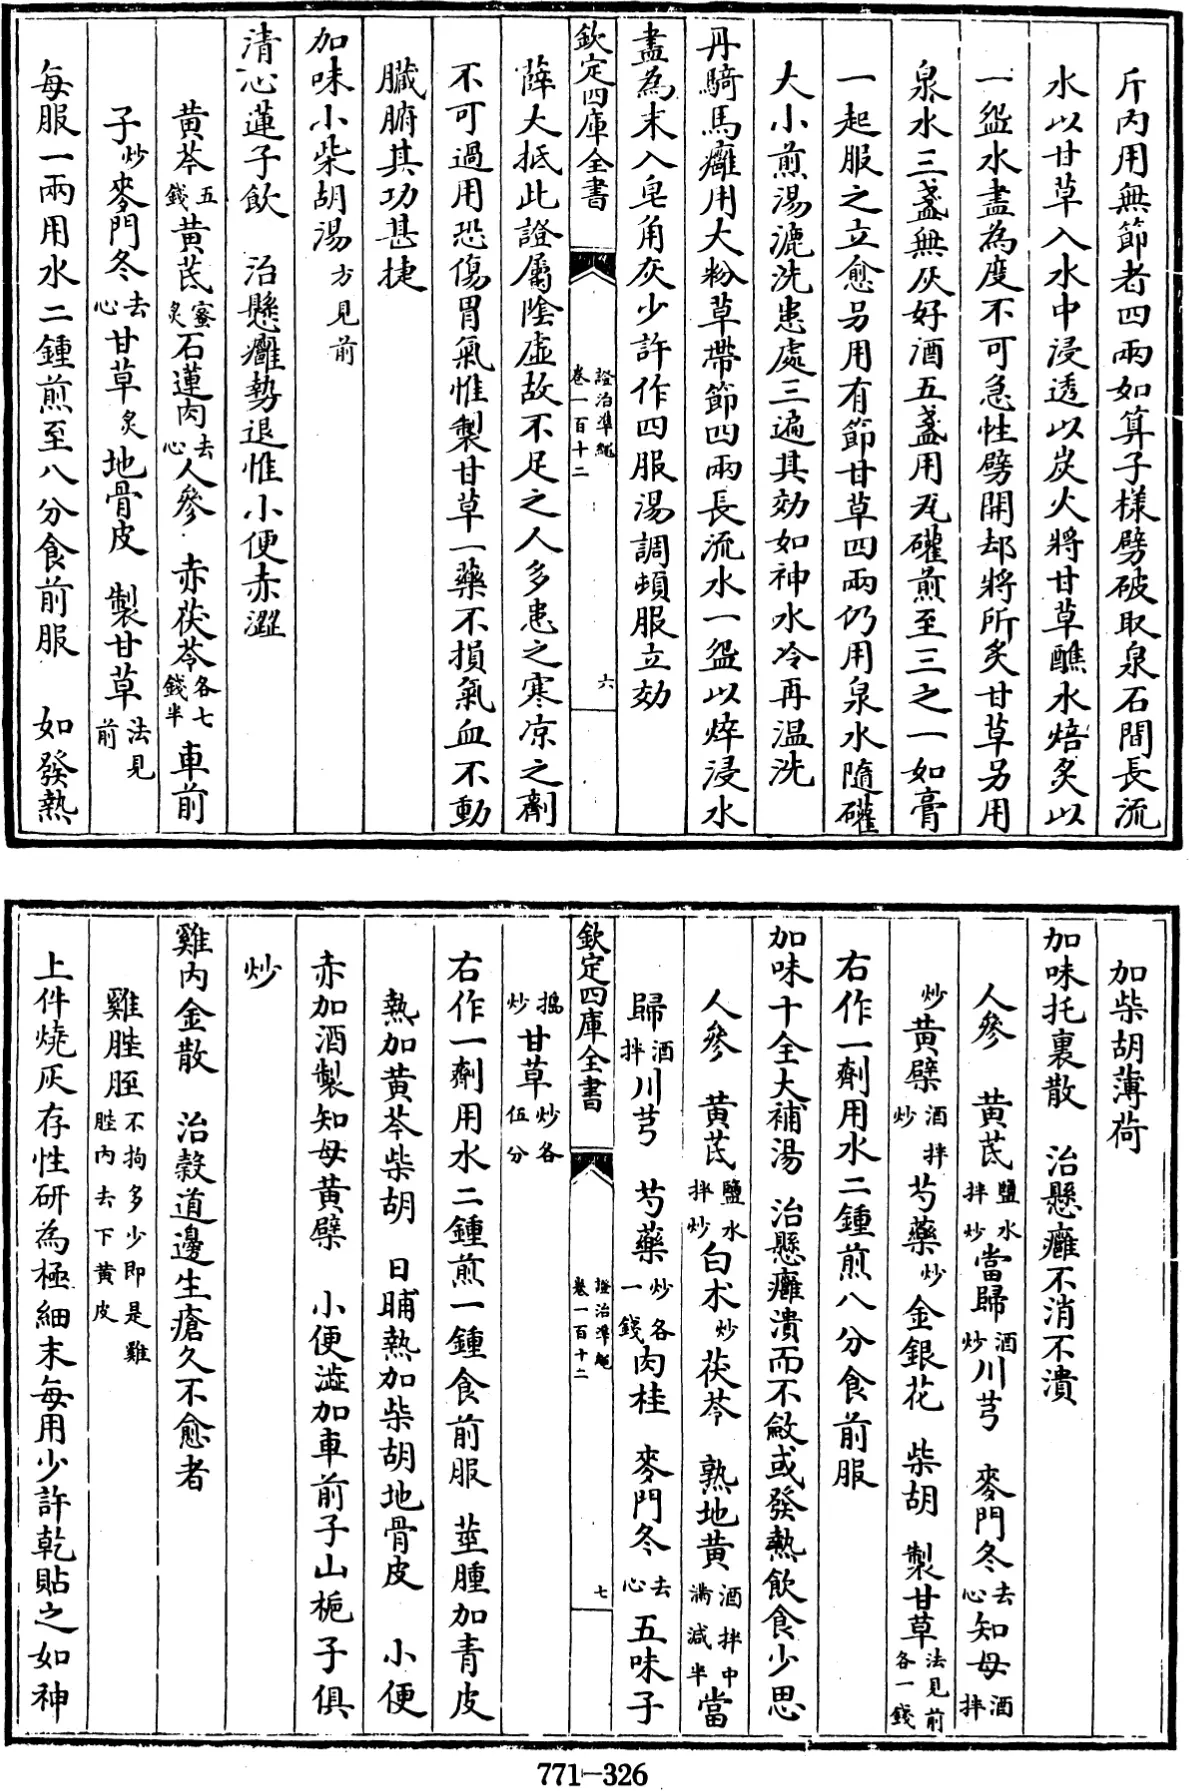 斤内用無節者四兩如算子樣劈破取泉石間長流
水以甘草入水中浸透以炭火將甘草蘸水焙炙以
一盌水盡為度不可急性劈開却將所炙甘草另用
泉水三盞無灰好酒五盞用瓦礶煎至三之一如膏
一起服之立愈另用有節甘草四兩仍用泉水隨礶
大小煎湯漉洗患處三遍其効如神水冷再温洗
丹騎馬癰用大粉草帶節四兩長流水一盌以焠浸水
盡為末入皂角灰少許作四服湯調頓服立効
欽定四庫全書 證治準繩 卷一百十二 六
薛大抵此證屬陰虛故不足之人多患之寒凉之劑
不可過用恐傷胃氣惟製甘草一藥不損氣血不動
臟腑其功甚捷
加味小柴胡湯方見前
清心蓮子飲 治懸癰勢退惟小便赤澀
黄芩五錢黄芪蜜炙石蓮肉去心人參 赤茯苓各七錢半 車前
子炒麥門冬去心甘草炙地骨皮 製甘草法見前
每服一兩用水二鍾煎至八分食前服 如發熱
加柴胡薄荷
加味托裏散 治懸癰不消不潰
人參 黄芪鹽水拌炒當歸酒炒川芎 麥門冬去心知母酒拌
炒黄檗酒拌炒 芍藥炒 金銀花 柴胡 製甘草法見前各一錢
右作一劑用水二鍾煎八分食前服
加味十全大補湯 治懸癰潰而不斂或發熱飲食少思
人參 黄芪鹽水拌炒白术炒茯苓 熟地黄酒拌中滿減半當
歸酒拌川芎 芍藥炒各一錢肉桂 麥門冬去心五味子
搗炒甘草炒各伍分
欽定四庫全書 證治準繩 卷一百十二 七
右作一劑用水二鍾煎一鍾食前服 莖腫加青皮
熱加黄芩柴胡 日晡熱加柴胡地骨皮 小便
赤加酒製知母黄檗 小便澁加車前子山梔子俱
炒
雞内金散 治穀道邊生瘡久不愈者
雞䏶胵不拘多少即是雞䏶内去下黄皮
上件燒灰存性研為極細末每用少許乾貼之如神
771-326